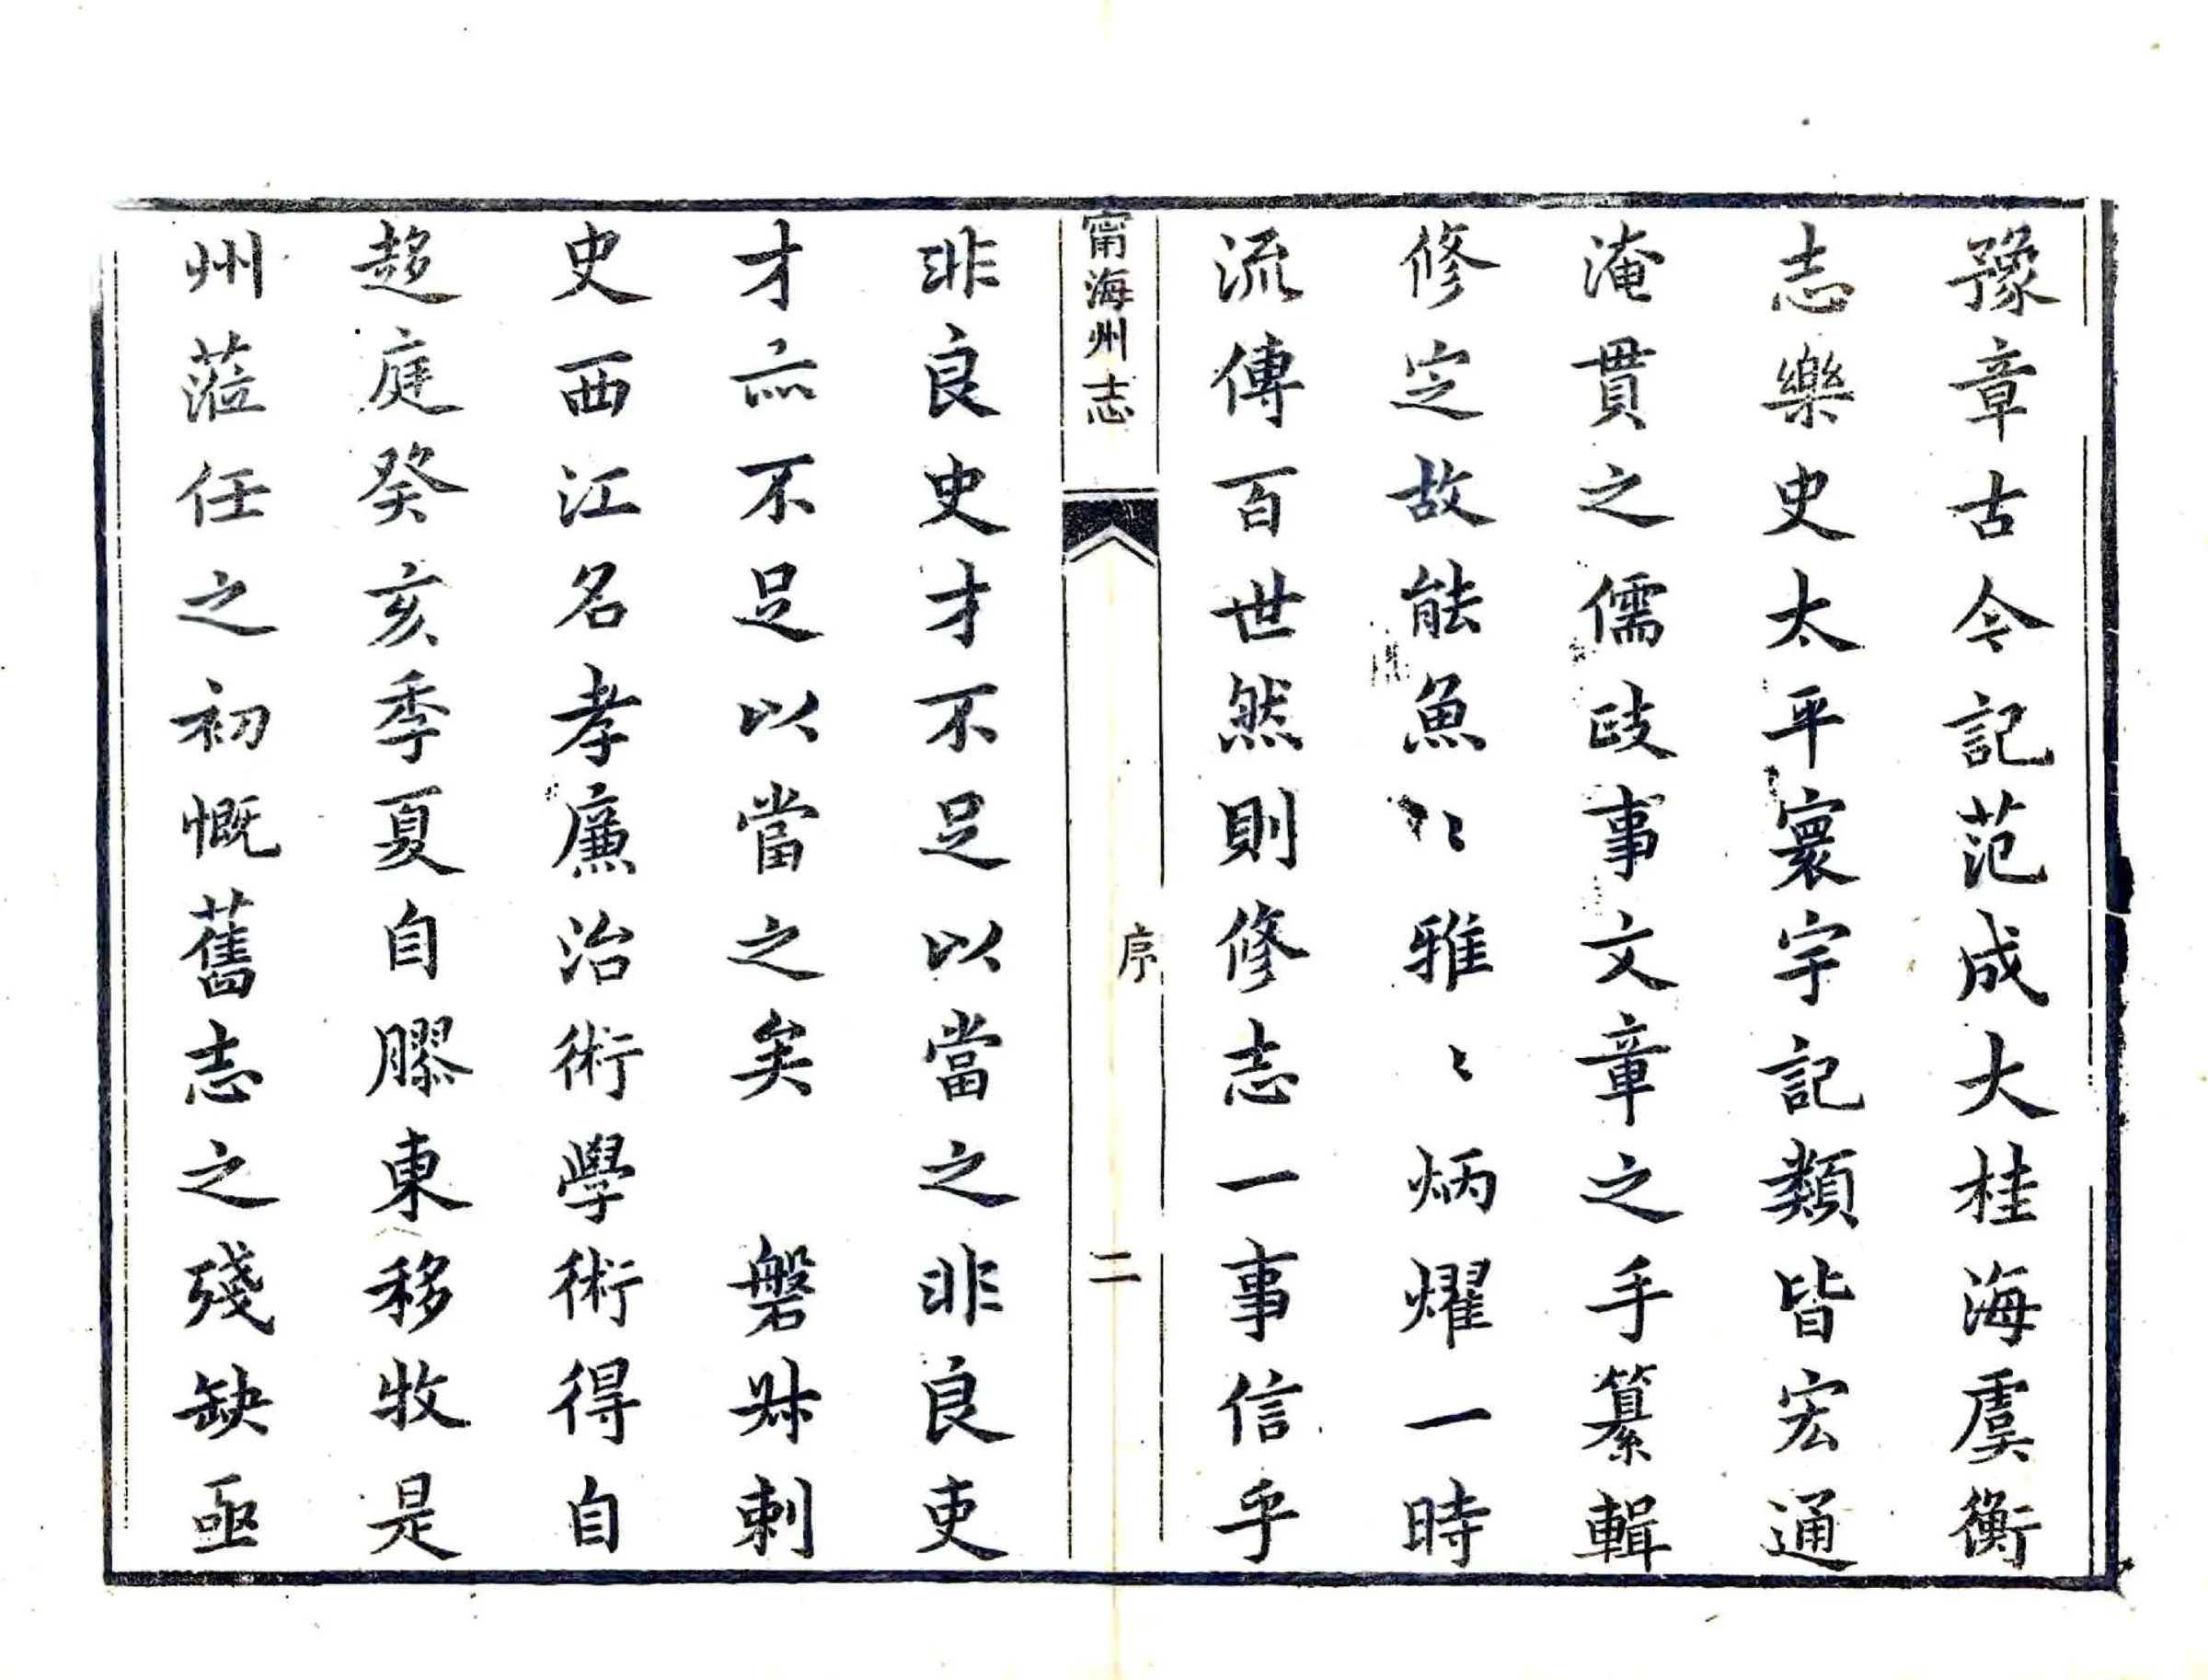 豫章古今記范成大桂海虞衡
志樂史太平寰宇記類皆宏通
淹貫之儒政事文章之手纂輯
修定故能魚〻雅〻炳耀一時
流傳百世然則修志一事信乎
甯海州志
序
二
非良史才不足以當之非良吏
才亦不足以當之矣　磐舛刺
史西江名孝廉治術學術得自
趨庭癸亥季夏自膠東移牧是
州蒞任之初慨舊志之殘缺亟